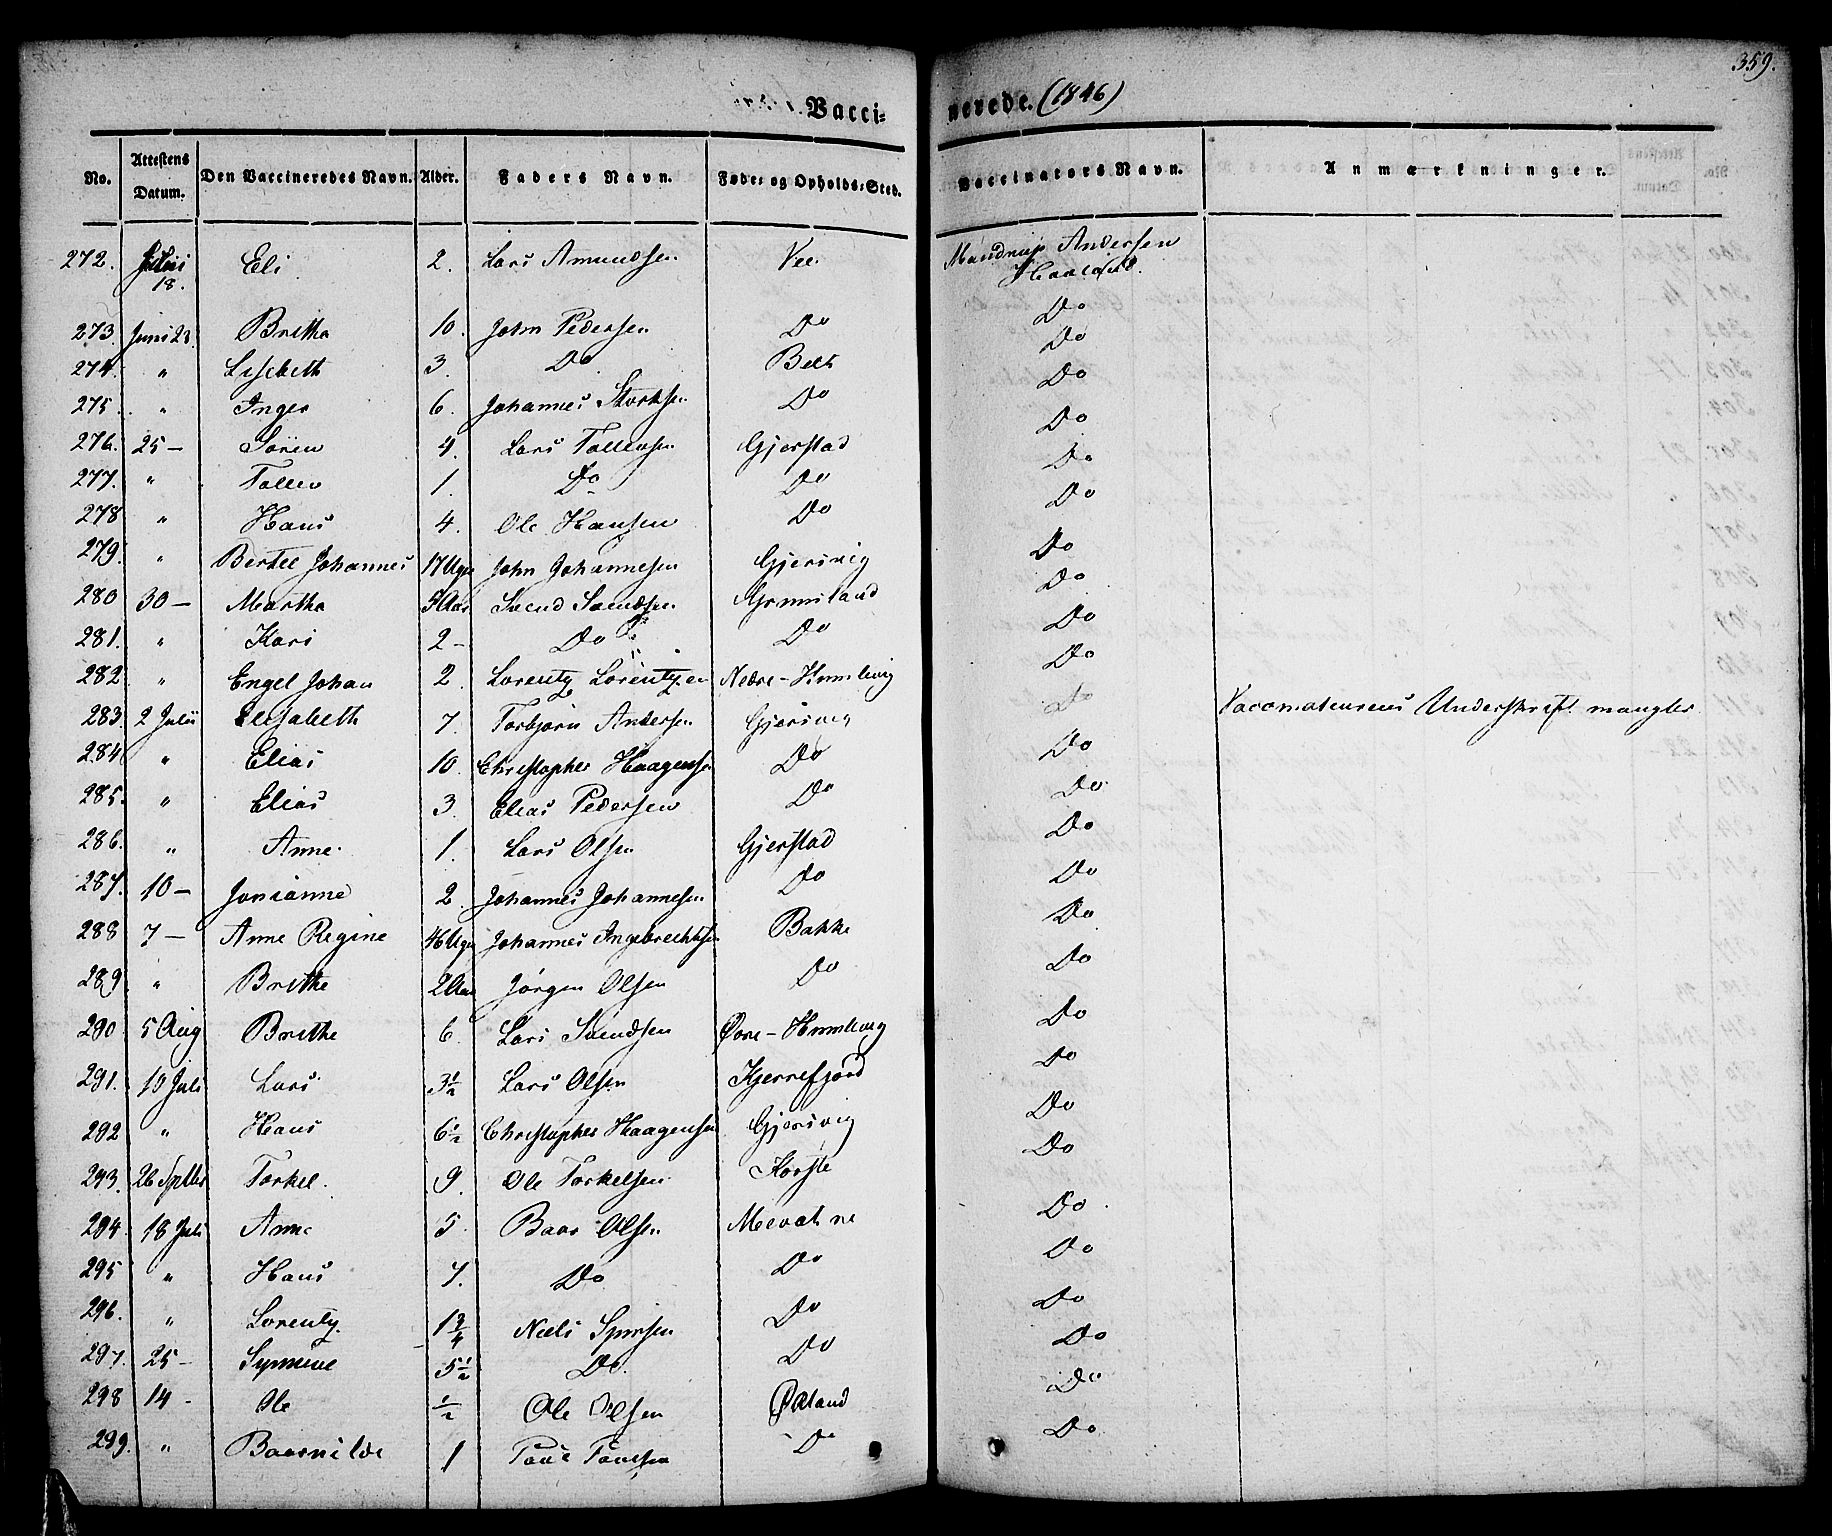 359.
Vacci-
nerede. (1846)
No. Attestens Datum. Den Vaccineredes Navn. Alder. Faders Navn. Føde- og Opholds-Sted. Vaccinators Navn. Anmærkninger.
272. 18. Eli 2. Lars Amundsen Vee Mandrup Andersen
273. Juni 23. Britha 10. John Pedersen Do Do
274. " Lisebeth 3. Do Do
275. " Inger 6. Johannes Do Do
276. 25 - Sören 4. Lars Tollevsen Gjerstad Do
277. " Tollev 1. Do Do Do
278 " Hans 4. Ole Hansen Do Do
279. " Bertel Johannes 17 Uger John Johannesen Gjersvig Do
280 30 - Martha 5 Aar Svend Svendsen Do
281. " Kari 2 - Do Do Do
282 " Engel Johan 2. Lorentz Lorentzen Nedre - Do
283. 2 Julii Elisabeth 7. Torbjørn Andersen Gjersvig Do Underskrift mangler
284 " Elias 10. Christopher Haagensen Do Do
285. " Elias 3. Elias Pedersen Do Do
286. " Anne 1. Lars Olsen Gjerstad Do
287. 10 - Jonianne 2. Johannes Johannesen Do Do
288 7 - Anne Regine 46 Uger Johannes Ingebrechtsen Bakke Do
289 " Brithe 2 Aar Jørgen Olsen Do Do
290 5 Aug Brithe 6. Lars Svendsen Øvre - Do
291. 10 Juli Lars 3½ Lars Olsen Kjerrefjord Do
292 " Hans 6½ Christopher Haagensen Gjersvig Do
293. 26 Septbr Torkel. 9. Ole Torkelsen Do
294. 18 Juli Anne 5. Baar Olsen Do
295 " Hans 7. Do Do Do
296. " Lorentz. 1¾ Niels Do Do
297. 25 - 5½ Do. Do Do
298 14 - Ole ½ Ole Olsen Do
299. " 1 Do Do